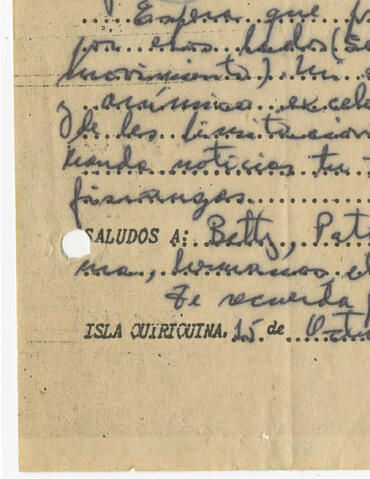 Espero que
por estos lados (Se
movimiento). Mi
y anímico excele
de las limitacion
Mando noticias tu
fianzas
SALUDOS A: Betty, Pat
ma, hermanos
Te recuerda
ISLA QUIRIQUINA, 15 de Octu